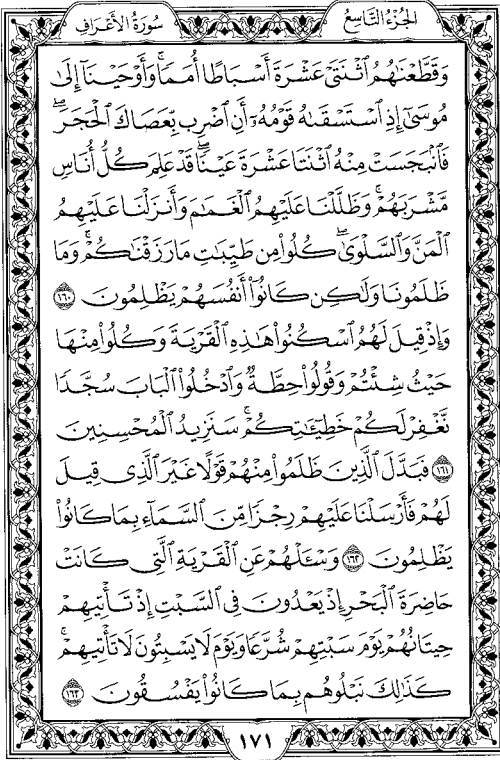 سُورَةُ الأَعْرَافِ
الجُزْءُ التَّاسِعُ
وَقَطَّعْنَٰهُمُ ٱثْنَتَىْ عَشْرَةَ أَسْبَاطًا أُمَمًا ۚ وَأَوْحَيْنَآ إِلَىٰ
مُوسَىٰٓ إِذِ ٱسْتَسْقَىٰهُ قَوْمُهُۥٓ أَنِ ٱضْرِب بِّعَصَاكَ ٱلْحَجَرَ ۖ
فَٱنۢبَجَسَتْ مِنْهُ ٱثْنَتَا عَشْرَةَ عَيْنًا ۖ قَدْ عَلِمَ كُلُّ أُنَاسٍ
مَّشْرَبَهُمْ ۚ وَظَلَّلْنَا عَلَيْهِمُ ٱلْغَمَٰمَ وَأَنزَلْنَا عَلَيْهِمُ
ٱلْمَنَّ وَٱلسَّلْوَىٰ ۖ كُلُوا۟ مِن طَيِّبَٰتِ مَا رَزَقْنَٰكُمْ ۚ وَمَا
ظَلَمُونَا وَلَٰكِن كَانُوٓا۟ أَنفُسَهُمْ يَظْلِمُونَ ١٦٠
وَإِذْ قِيلَ لَهُمُ ٱسْكُنُوا۟ هَٰذِهِ ٱلْقَرْيَةَ وَكُلُوا۟ مِنْهَا
حَيْثُ شِئْتُمْ وَقُولُوا۟ حِطَّةٌ وَٱدْخُلُوا۟ ٱلْبَابَ سُجَّدًا
نَّغْفِرْ لَكُمْ خَطِيٓـَٰٔتِكُمْ ۚ سَنَزِيدُ ٱلْمُحْسِنِينَ
١٦١ فَبَدَّلَ ٱلَّذِينَ ظَلَمُوا۟ مِنْهُمْ قَوْلًا غَيْرَ ٱلَّذِى قِيلَ
لَهُمْ فَأَرْسَلْنَا عَلَيْهِمْ رِجْزًا مِّنَ ٱلسَّمَآءِ بِمَا كَانُوا۟
يَظْلِمُونَ ١٦٢ وَسْـَٔلْهُمْ عَنِ ٱلْقَرْيَةِ ٱلَّتِى كَانَتْ
حَاضِرَةَ ٱلْبَحْرِ إِذْ يَعْدُونَ فِى ٱلسَّبْتِ إِذْ تَأْتِيهِمْ
حِيتَانُهُمْ يَوْمَ سَبْتِهِمْ شُرَّعًا وَيَوْمَ لَا يَسْبِتُونَ لَا تَأْتِيهِمْ ۚ
كَذَٰلِكَ نَبْلُوهُم بِمَا كَانُوا۟ يَفْسُقُونَ ١٦٣
١٧١